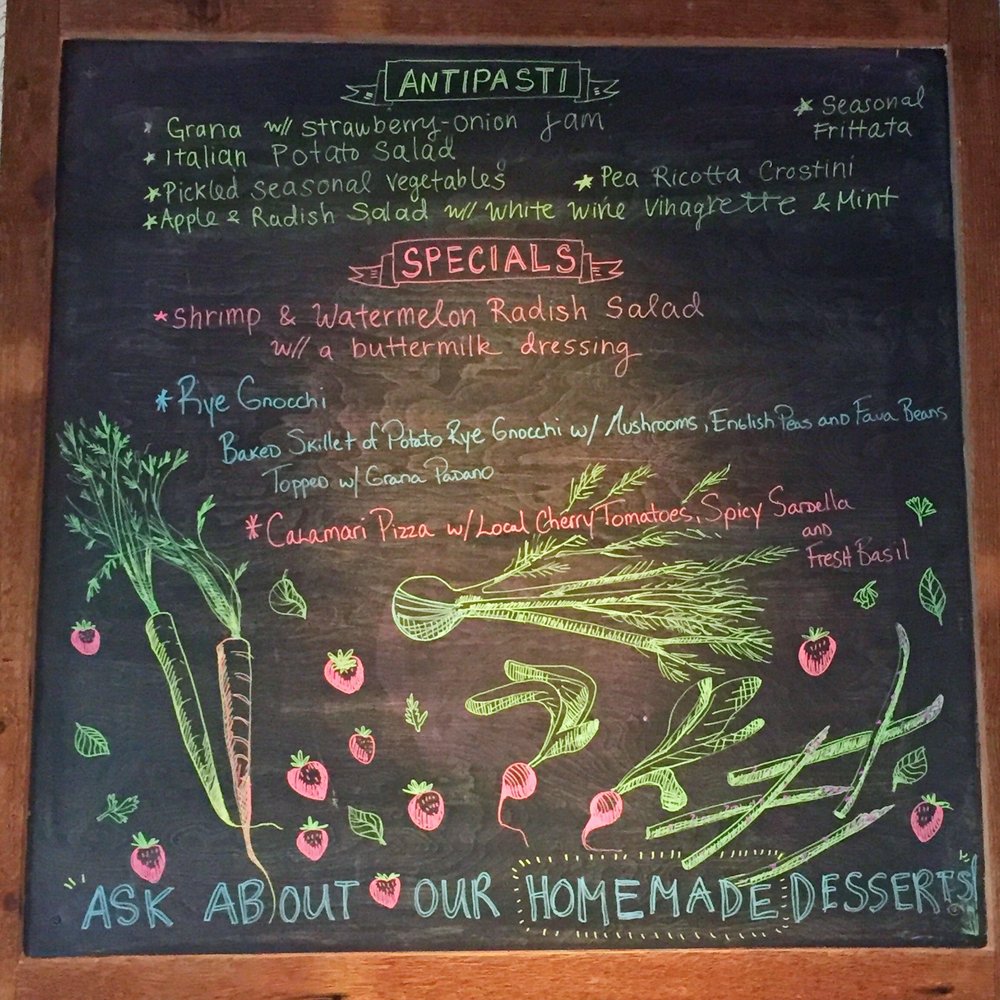 ANTIPASTI
* Grana w// strawberry-onion jam
* Seasonal
Frittata
* Italian Potato Salad
* Pickled seasonal vegetables
* Pea Ricotta Crostini
* Apple & Radish Salad w/ White wine vinagrette & Mint
SPECIALS
* Shrimp & Watermelon Radish Salad
w// a buttermilk dressing
* Rye Gnocchi
Baked Skillet of Potato Rye Gnocchi w/ Mushrooms, English Peas and Fava Beans,
Topped w/ Grana Padano
* Calamari Pizza w/ Local Cherry Tomatoes, Spicy Sardella
and
Fresh Basil
ASK ABOUT OUR HOMEMADE DESSERTS!